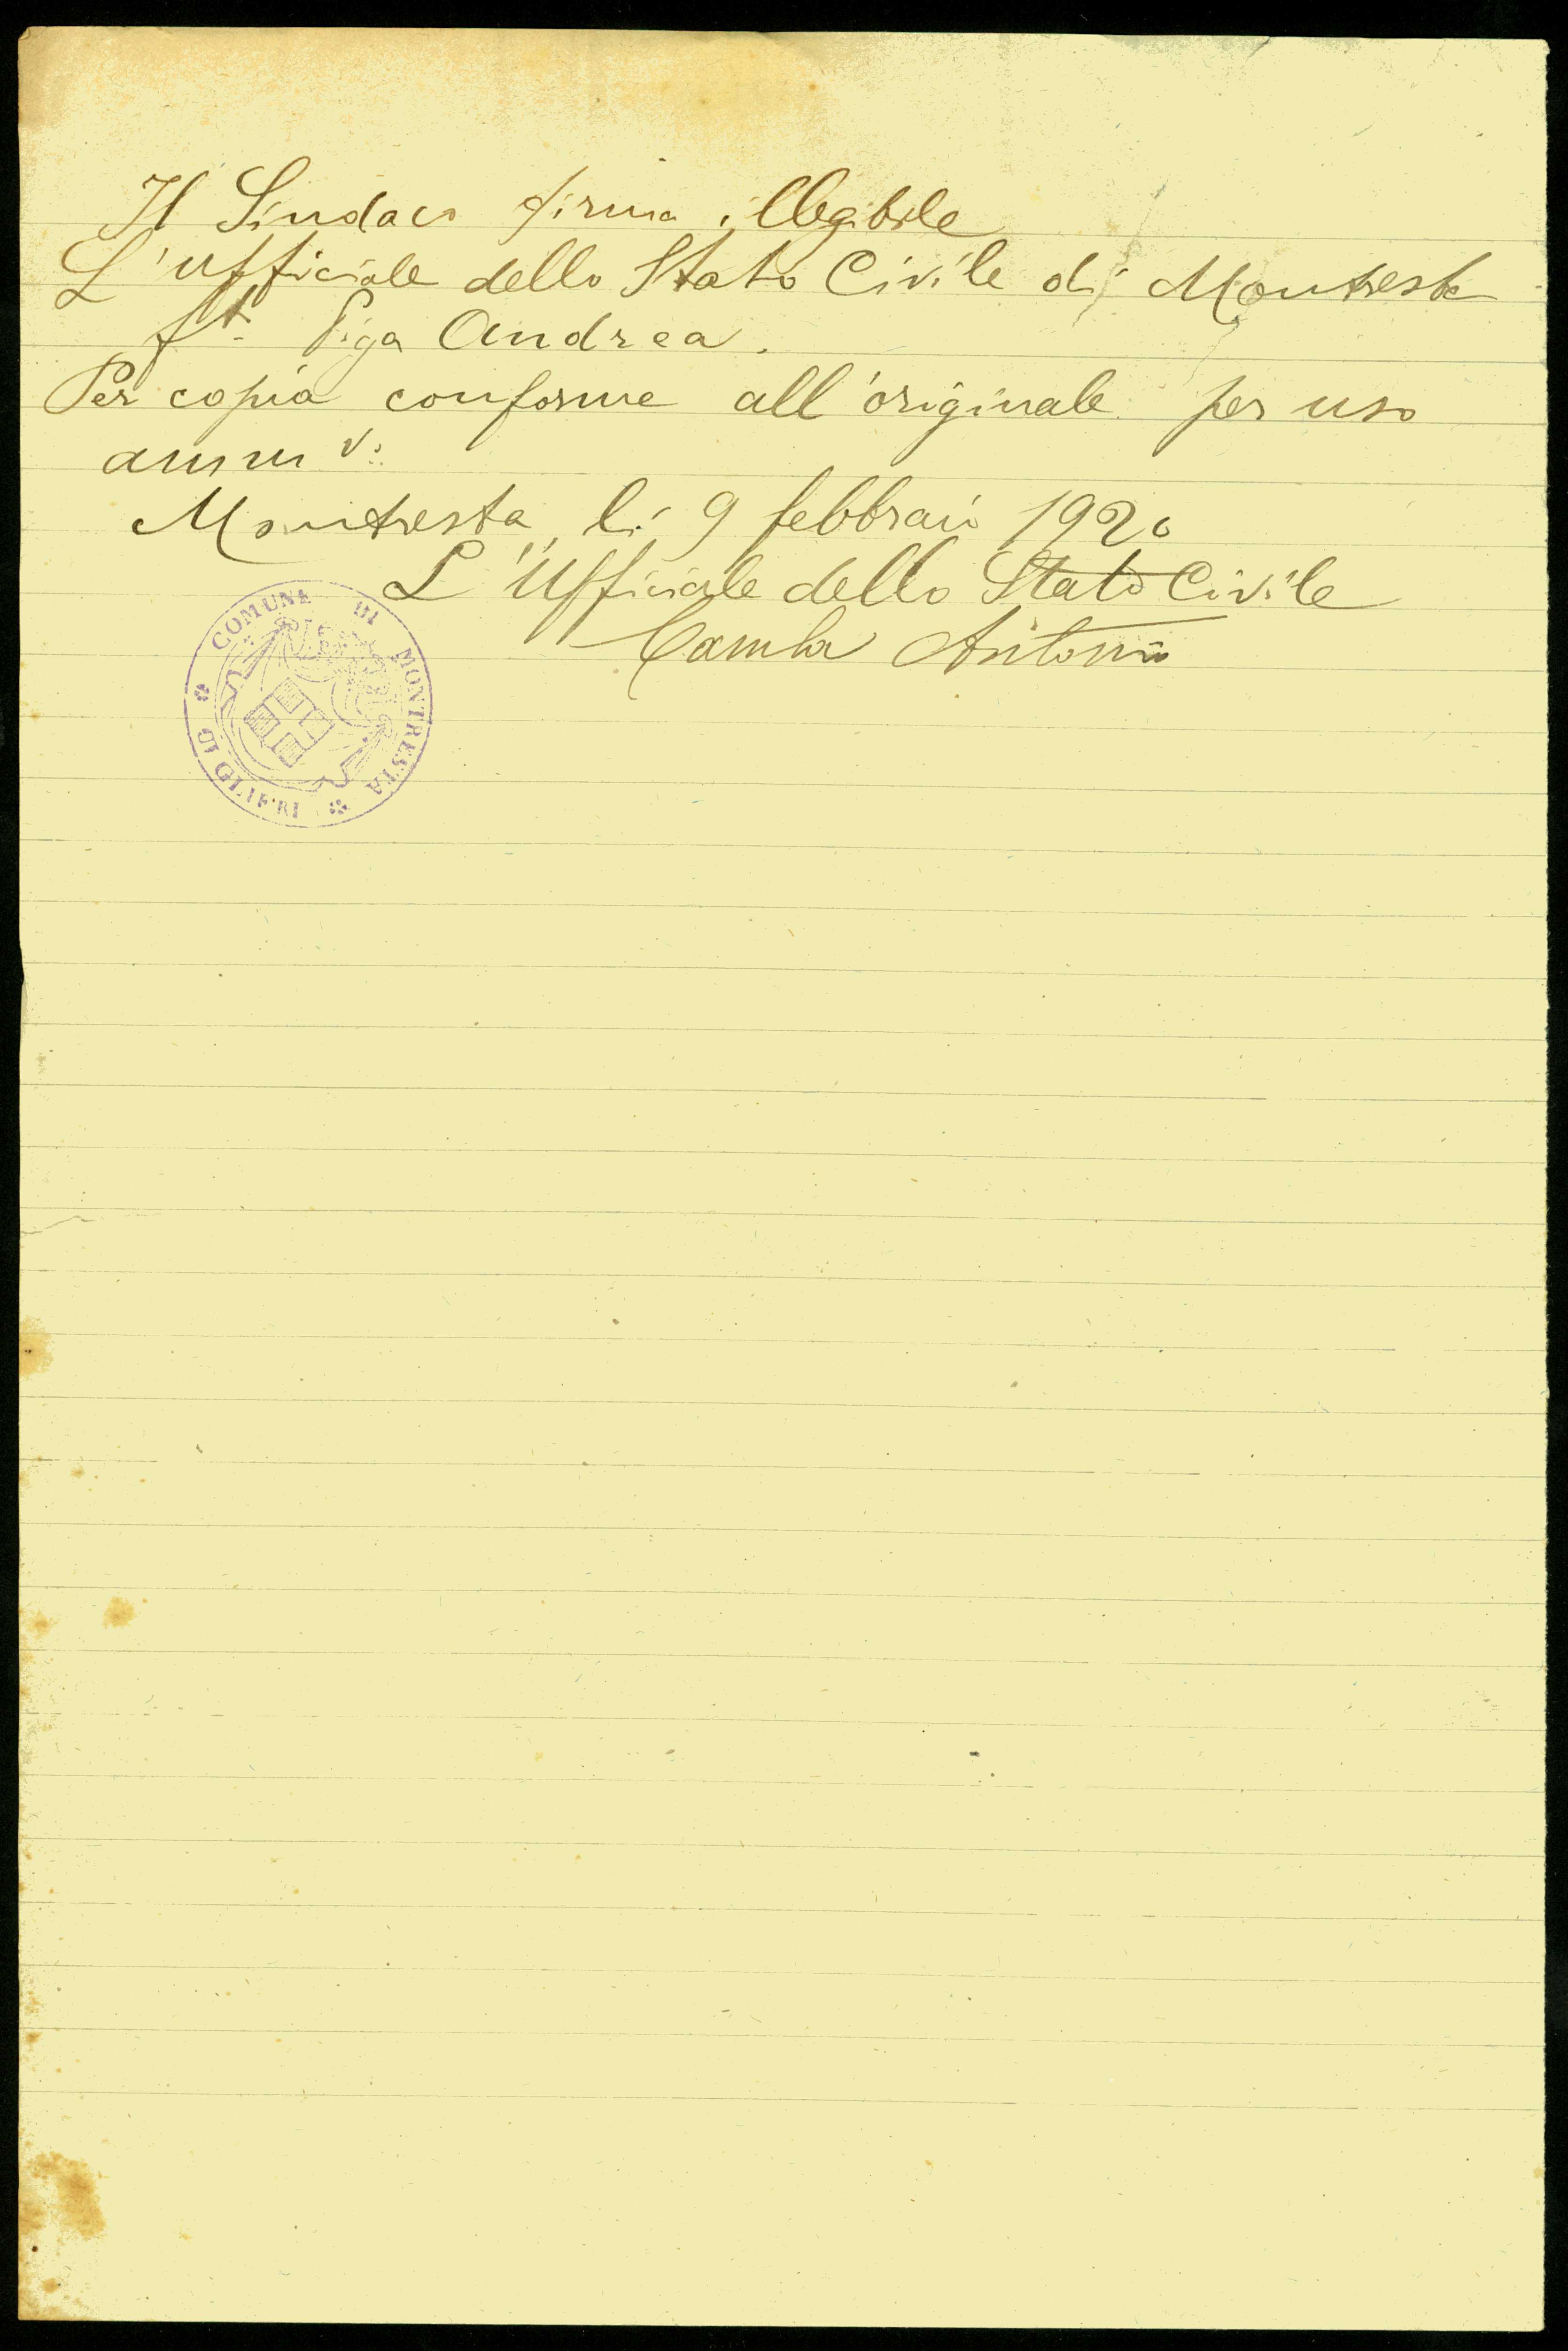 Il Sindaco firma illegibile
L'ufficiale dello Stato Civile di Montresta
ft. Piga Andrea.
Per copia conforme all'originale per uso
amm v:
Montresta, li 9 febbraio 1920
L'Ufficiale dello Stato Civile
Antonio
COMUNA DI MONTRESTA